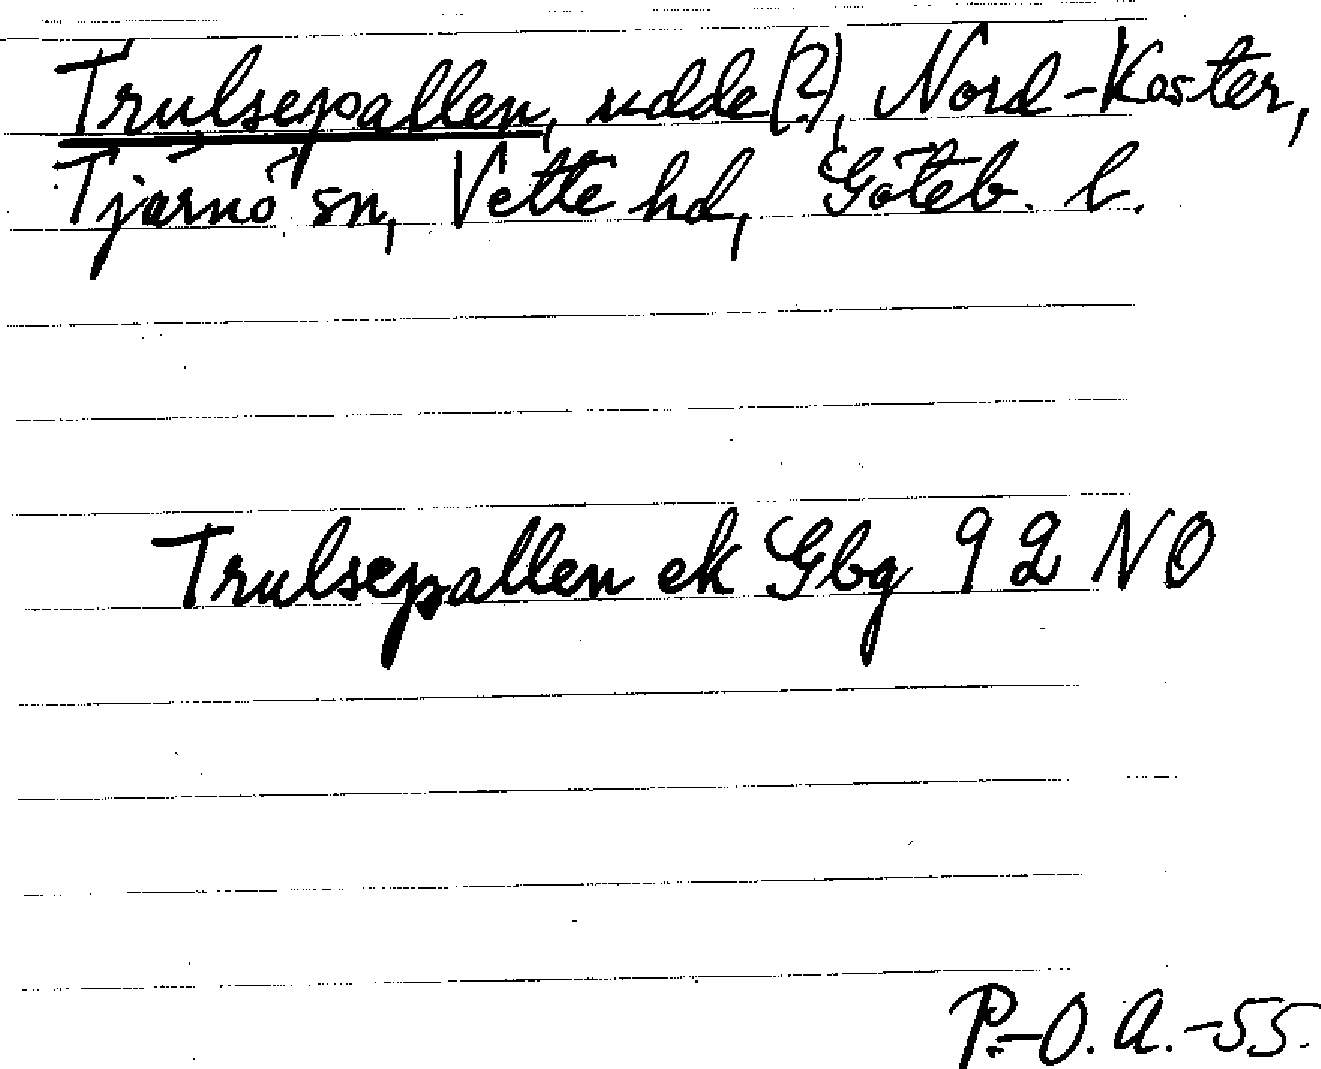 Trulsepallen, udde(?), Nord-Koster,
Tjärnö sn, Vette hd, Göteb. l.
Trulsepallen ek Gbg 92 NO
P.-O. A. -55.